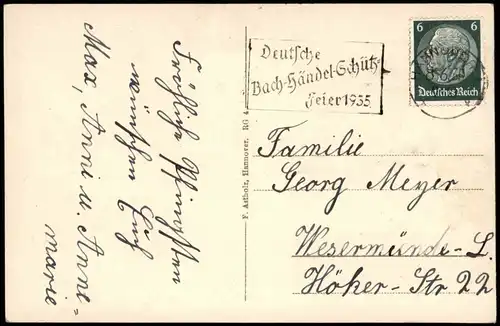 Fröhliche Pfingsten
wünschen Euch
Max, Anni u. Anne=
marie
F. Astholz, Hannover. RG 4
Deutsche
Bach-Händel-Schütz-
Feier 1935
6 6
Deutsches Reich
Familie
Georg Meyer
Wesermünde-L.
Höker-Str 22